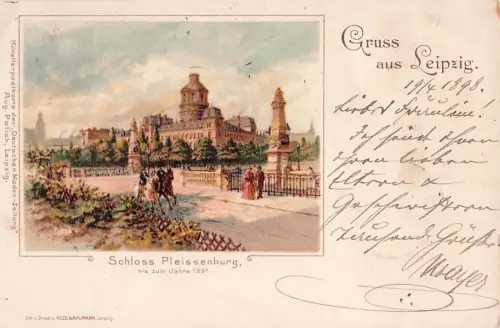 Gruss
aus Leipzig.
19/4 1898.
Liebes Fräulein!
Ich sende Ihnen
Ihren lieben
Eltern &
Geschwistern
tausend Grüße
Mayer
Schloss Pleissenburg,
bis zum Jahre 1897.
Künstlerpostkarte der „Deutschen Moden-Zeitung"
Aug. Polich, Leipzig.
Leipzig.